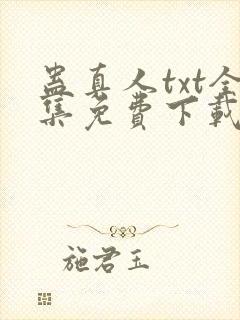 蛊真人txt全
集免费下载
施君玉